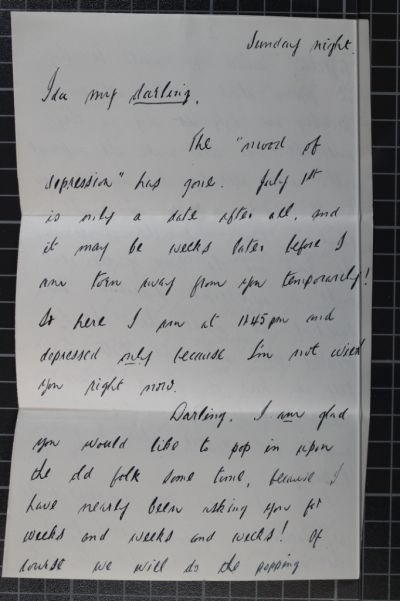 Sunday night.
Ida my darling,
The "mood of
depression" has gone. July 1st
is only a date after all, and
it may be weeks later before I
am torn away from you temporarily!
So here I am at 11.45pm and
depressed only because I'm not with
you right now.
Darling, I am glad
you would like to pop in upon
the old folk some time, because I
have nearly been asking you for
weeks and weeks and weeks! Of
course we will do the popping